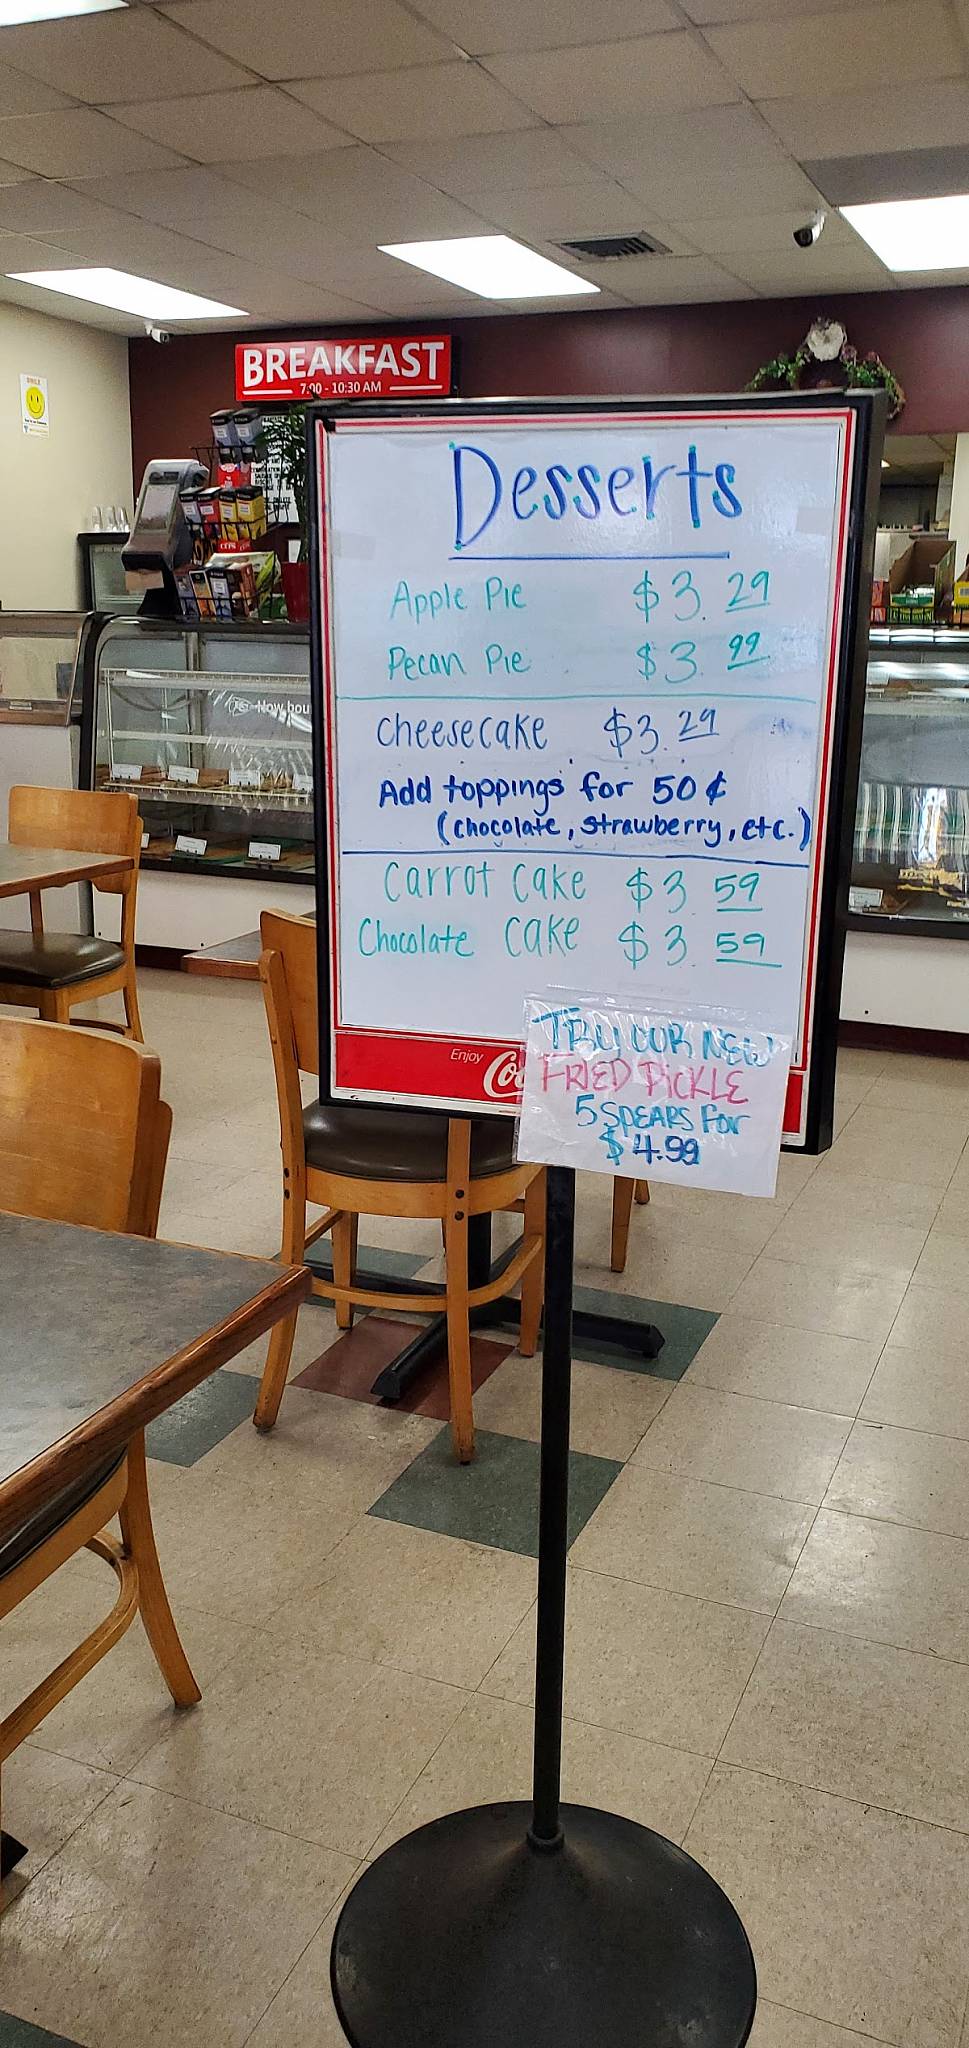 BREAKFAST
7:00 - 10:30 AM
SMILE
Desserts
Apple Pie $3.29
Pecan Pie $3.99
Cheesecake $3.29
Add toppings for 50¢
(chocolate, strawberry, etc.)
Carrot Cake $3 59
Chocolate Cake $3 59
Enjoy
TRY OUR NEW
FRIED PICKLE
5 SPEARS FOR
$4.99